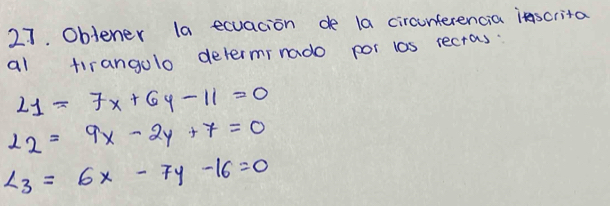 27. Obtener la ecuación de la circunferencia inscrita
al tirangulo determinado por las rectas:
L1 = 7x + 6y - 11 = 0
L2 = 9x - 2y + 7 = 0
L3 = 6x - 7y - 16 = 0